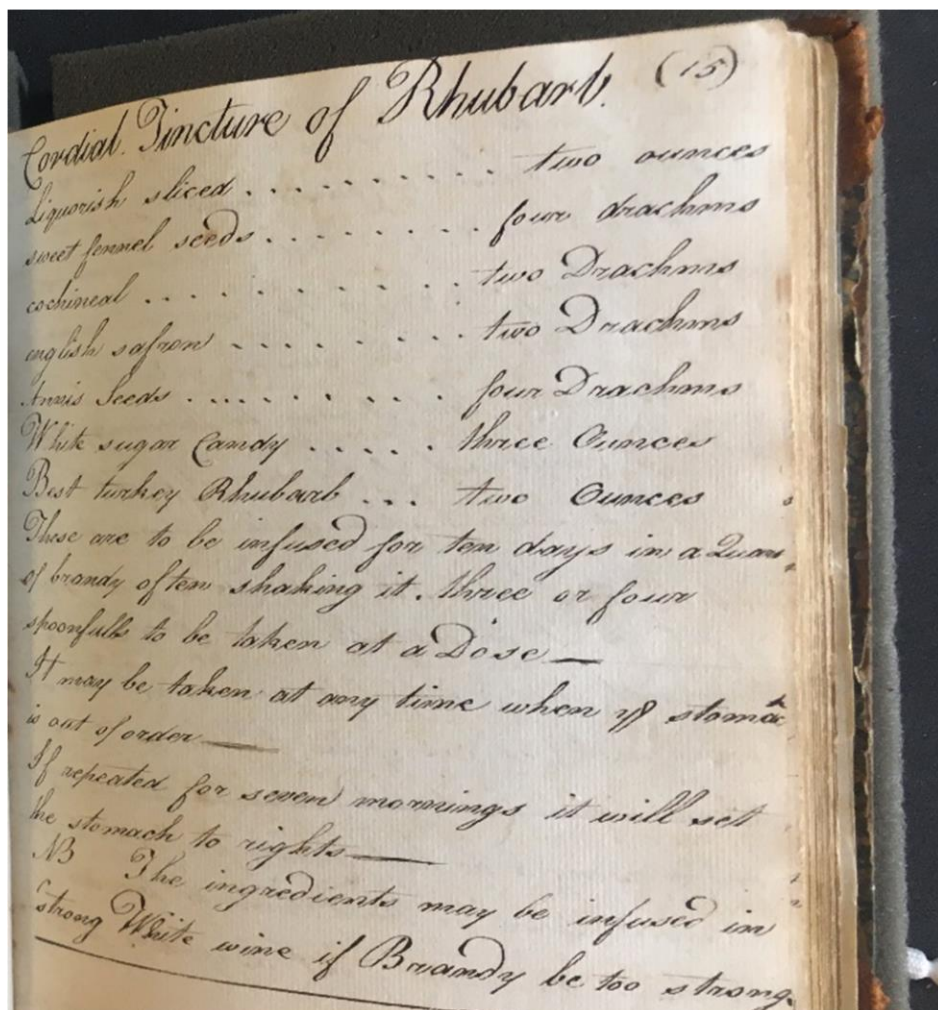 (15)
Cordial Tincture of Rhubarb.
Liquorish sliced .......... two ounces
sweet fennel seeds ........ four drachms
cochineal .......... two Drachms
english safron ........ two Drachms
Annis Seeds ......... four Drachms
White sugar Candy ..... three Ounces
Best turkey Rhubarb ... two Ounces
These are to be infused for ten days in a Quart
of brandy often shaking it. three or four
spoonfulls to be taken at a Dose —
It may be taken at any time when ye stomach
is out of order —
If repeated for seven mornings it will set
the stomach to rights —
NB The ingredients may be infused in
strong White wine if Brandy be too strong.